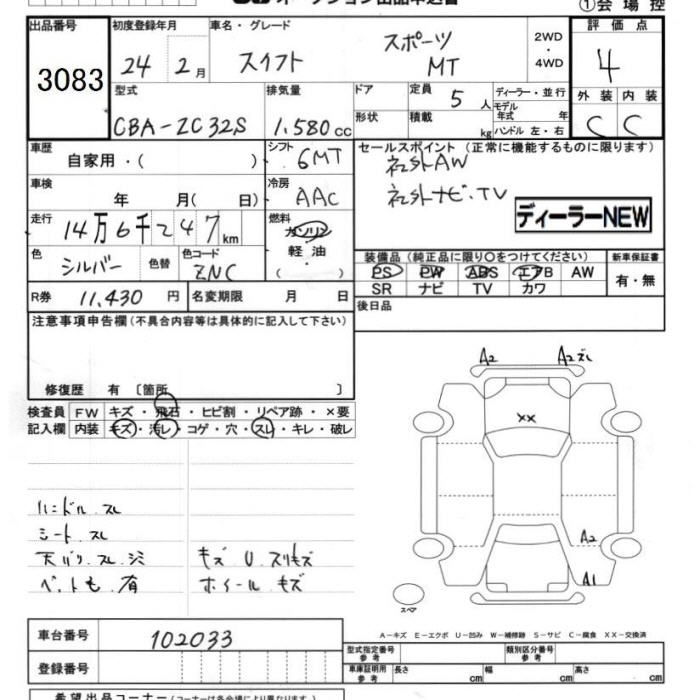 ①会場控
出品番号 初度登録年月 車名・グレード 評価点
3083 24年 2月 スイフト スポーツ MT 2WD・4WD 4
型式 排気量 ドア 定員 5人 ディーラー・並行 外装 内装
CBA-ZC32S 1.580cc 形状 積載 kg モデル年式 年 ハンドル 左・右 C C
車歴 自家用・( ) シフト 6MT セールスポイント (正常に機能するものに限ります)
社外AW
車検 年 月( 日) 冷房 AAC 社外ナビ.TV
ディーラーNEW
走行 14万6千247km 燃料 ガソリン
軽油
( )
色 シルバー 色替 色コード ZNC
装備品(純正品に限り○をつけてください) 新車保証書
PS PW ABS エアB AW 有・無
SR ナビ TV カワ
R券 11,430円 名変期限 月 日 後日品
注意事項申告欄(不具合内容等は具体的に記入して下さい)
修復歴 有 〔箇所 〕
検査員 FW キズ・飛石・ヒビ割・リペア跡・×要
記入欄 内装 キズ・汚レ・コゲ・穴・スレ・キレ・破レ
A2 A2
XX
ハンドル.スレ
シート.スレ
天バリ.スレ.シミ キズ U.スリキズ
ペットも.有 ホイールキズ
A2
A1
スペア
A-キズ E-エクボ U-凹み W-補修跡 S-サビ C-腐食 XX-交換済
車台番号 102033
型式指定番号 参考 類別区分番号 参考
登録番号
車庫証明用 参考 長さ cm 幅 cm 高さ cm
希望出品コーナー